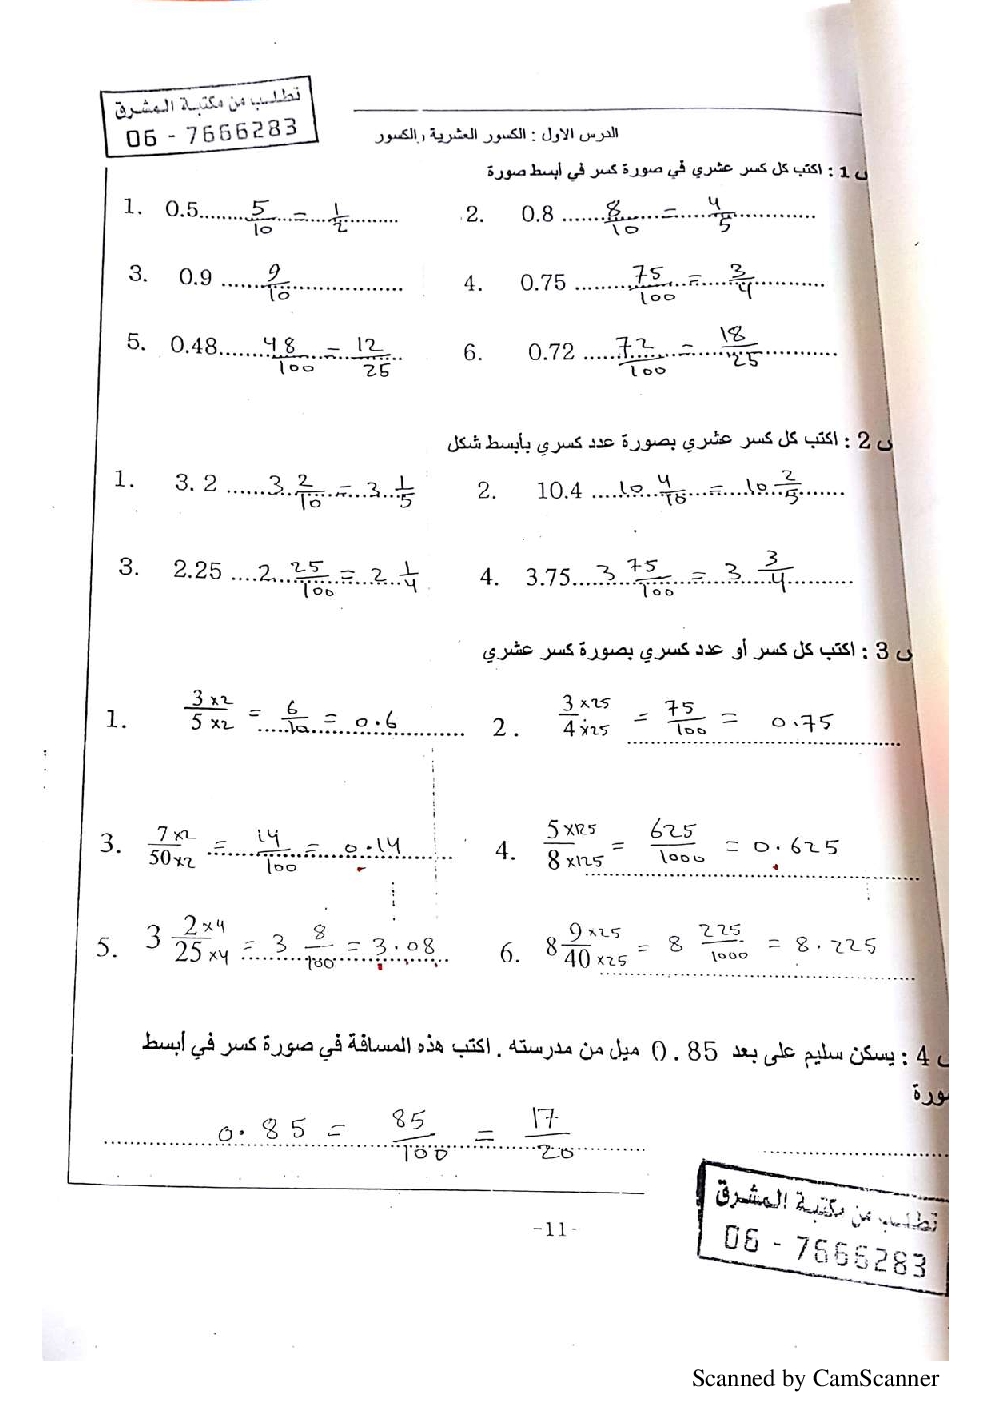 تطلب من مكتبة المشرق
06 - 7666283
الدرس الاول : الكسور العشرية والكسور
س 1 : اكتب كل كسر عشري في صورة كسر في أبسط صورة
1. 0.5 5/10 = 1/2
2. 0.8 8/10 = 4/5
3. 0.9 9/10
4. 0.75 75/100 = 3/4
5. 0.48 48/100 = 12/25
6. 0.72 72/100 = 18/25
س 2 : اكتب كل كسر عشري بصورة عدد كسري بأبسط شكل
1. 3.2 3 2/10 = 3 1/5
2. 10.4 10 4/10 = 10 2/5
3. 2.25 2 25/100 = 2 1/4
4. 3.75 3 75/100 = 3 3/4
س 3 : اكتب كل كسر أو عدد كسري بصورة كسر عشري
1. 3×2/5×2 = 6/10 = 0.6
2. 3×25/4×25 = 75/100 = 0.75
3. 7×2/50×2 = 14/100 = 0.14
4. 5×125/8×125 = 625/1000 = 0.625
5. 3 2×4/25×4 = 3 8/100 = 3.08
6. 8 9×25/40×25 = 8 225/1000 = 8.225
س 4 : يسكن سليم على بعد 0.85 ميل من مدرسته . اكتب هذه المسافة في صورة كسر في أبسط
صورة
0.85 = 85/100 = 17/20
-11-
تطلب من مكتبة المشرق
06 - 7666283
Scanned by CamScanner